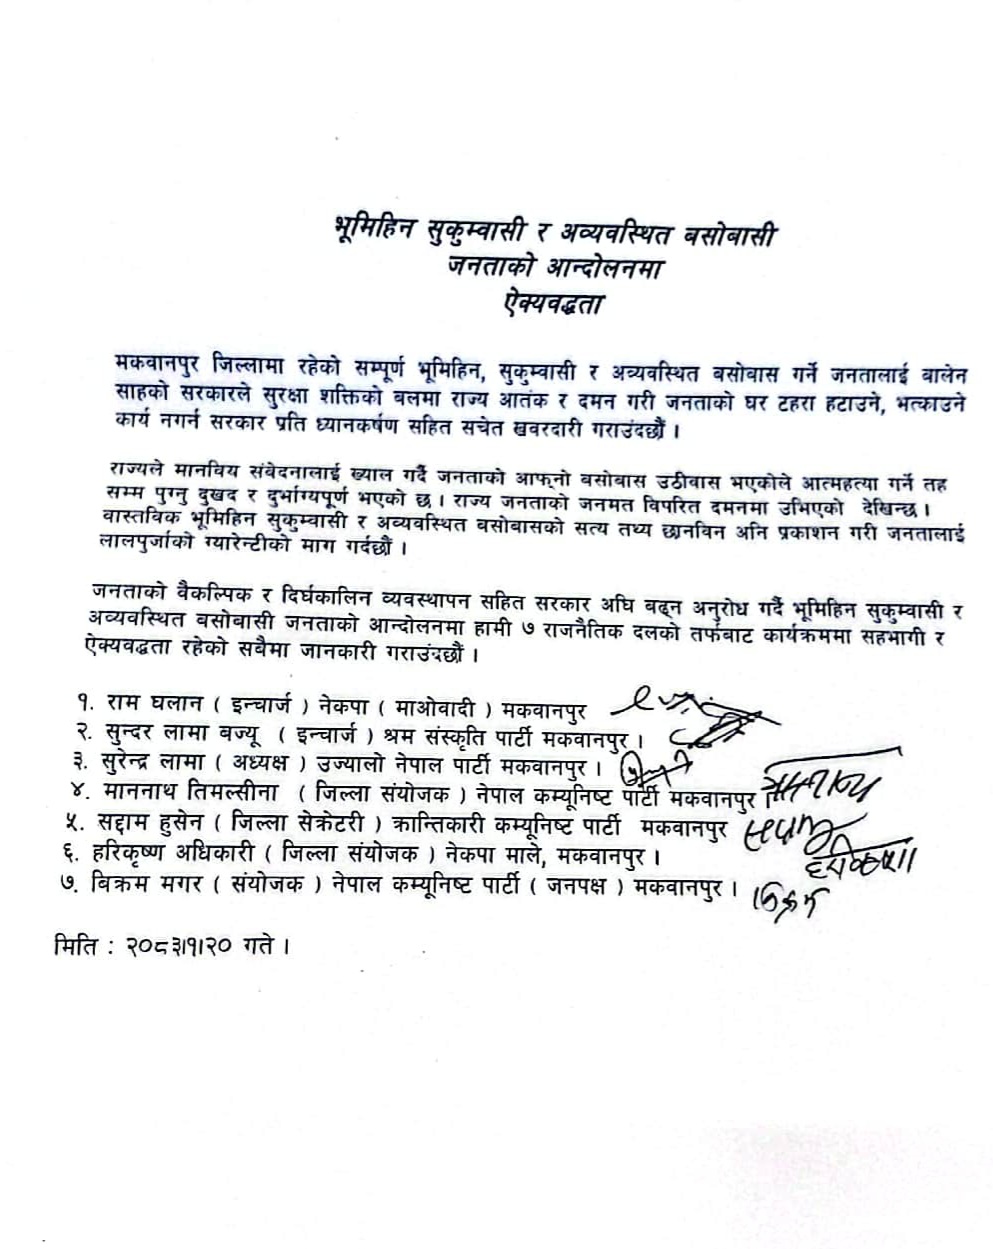 भूमिहिन सुकुम्वासी र अव्यवस्थित बसोबासी
जनताको आन्दोलनमा
ऐक्यवद्धता
मकवानपुर जिल्लामा रहेको सम्पूर्ण भूमिहिन, सुकुम्वासी र अव्यवस्थित बसोबास गर्ने जनतालाई बालेन
साहको सरकारले सुरक्षा शक्तिको बलमा राज्य आतंक र दमन गरी जनताको घर टहरा हटाउने, भत्काउने
कार्य नगर्न सरकार प्रति ध्यानकर्षण सहित सचेत खवरदारी गराउंदछौं ।
राज्यले मानविय संवेदनालाई ख्याल गर्दै जनताको आफ्नो बसोबास उठीवास भएकोले आत्महत्या गर्ने तह
सम्म पुग्नु दुखद र दुर्भाग्यपूर्ण भएको छ । राज्य जनताको जनमत विपरित दमनमा उभिएको देखिन्छ ।
वास्तविक भूमिहिन सुकुम्वासी र अव्यवस्थित बसोबासको सत्य तथ्य छानविन अनि प्रकाशन गरी जनतालाई
लालपुर्जाको ग्यारेन्टीको माग गर्दछौं ।
जनताको वैकल्पिक र दिर्घकालिन व्यवस्थापन सहित सरकार अघि बढ्न अनुरोध गर्दै भूमिहिन सुकुम्वासी र
अव्यवस्थित बसोबासी जनताको आन्दोलनमा हामी ७ राजनैतिक दलको तर्फबाट कार्यक्रममा सहभागी र
ऐक्यवद्धता रहेको सबैमा जानकारी गराउंदछौं ।
१. राम घलान ( इन्चार्ज ) नेकपा ( माओवादी ) मकवानपुर
२. सुन्दर लामा बज्यू ( इन्चार्ज ) श्रम संस्कृति पार्टी मकवानपुर ।
३. सुरेन्द्र लामा ( अध्यक्ष ) उज्यालो नेपाल पार्टी मकवानपुर ।
४. माननाथ तिमल्सीना ( जिल्ला संयोजक ) नेपाल कम्यूनिष्ट पार्टी मकवानपुर ।
५. सद्दाम हुसेन ( जिल्ला सेक्रेटरी ) क्रान्तिकारी कम्यूनिष्ट पार्टी मकवानपुर
६. हरिकृष्ण अधिकारी ( जिल्ला संयोजक ) नेकपा माले, मकवानपुर ।
७. बिक्रम मगर ( संयोजक ) नेपाल कम्यूनिष्ट पार्टी ( जनपक्ष ) मकवानपुर । बिक्रम
मिति : २०८३।१।२० गते ।